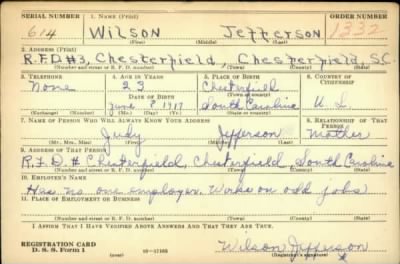 SERIAL NUMBER 1. NAME (Print) ORDER NUMBER
614 Wilson Jefferson 1332
(First) (Middle) (Last)
2. ADDRESS (Print)
R.F.D #3, Chesterfield, Chesterfield, S.C.
(Number and street or R. F. D. number) (Town) (County) (State)
3. TELEPHONE 4. AGE IN YEARS 5. PLACE OF BIRTH 6. COUNTRY OF CITIZENSHIP
None 23 Chesterfield
DATE OF BIRTH (Town or county)
June 1917 South Carolina U.S.
(Exchange) (Number) (Mo.) (Day) (Yr.) (State or country)
7. NAME OF PERSON WHO WILL ALWAYS KNOW YOUR ADDRESS 8. RELATIONSHIP OF THAT PERSON
Judy Jefferson Mother
(Mr., Mrs., Miss) (First) (Middle) (Last)
9. ADDRESS OF THAT PERSON
R.F.D. # Chesterfield, Chesterfield South Carolina
(Number and street or R. F. D. number) (Town) (County) (State)
10. EMPLOYER'S NAME
Has no one employer. Works on odd jobs
11. PLACE OF EMPLOYMENT OR BUSINESS
(Number and street or R. F. D. number) (Town) (County) (State)
I AFFIRM THAT I HAVE VERIFIED ABOVE ANSWERS AND THAT THEY ARE TRUE.
REGISTRATION CARD
D. S. S. Form 1 16—17105 Wilson Jefferson